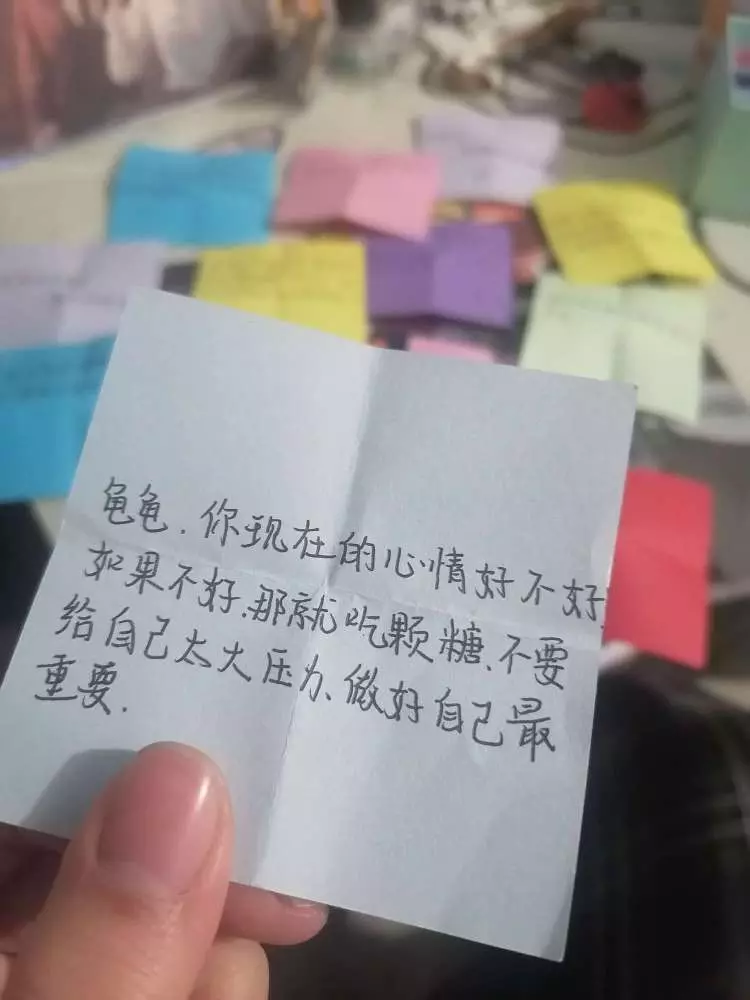 龟龟.你现在的心情好不好,
如果不好.那就吃颗糖、不要
给自己太大压力、做好自己最
重要.